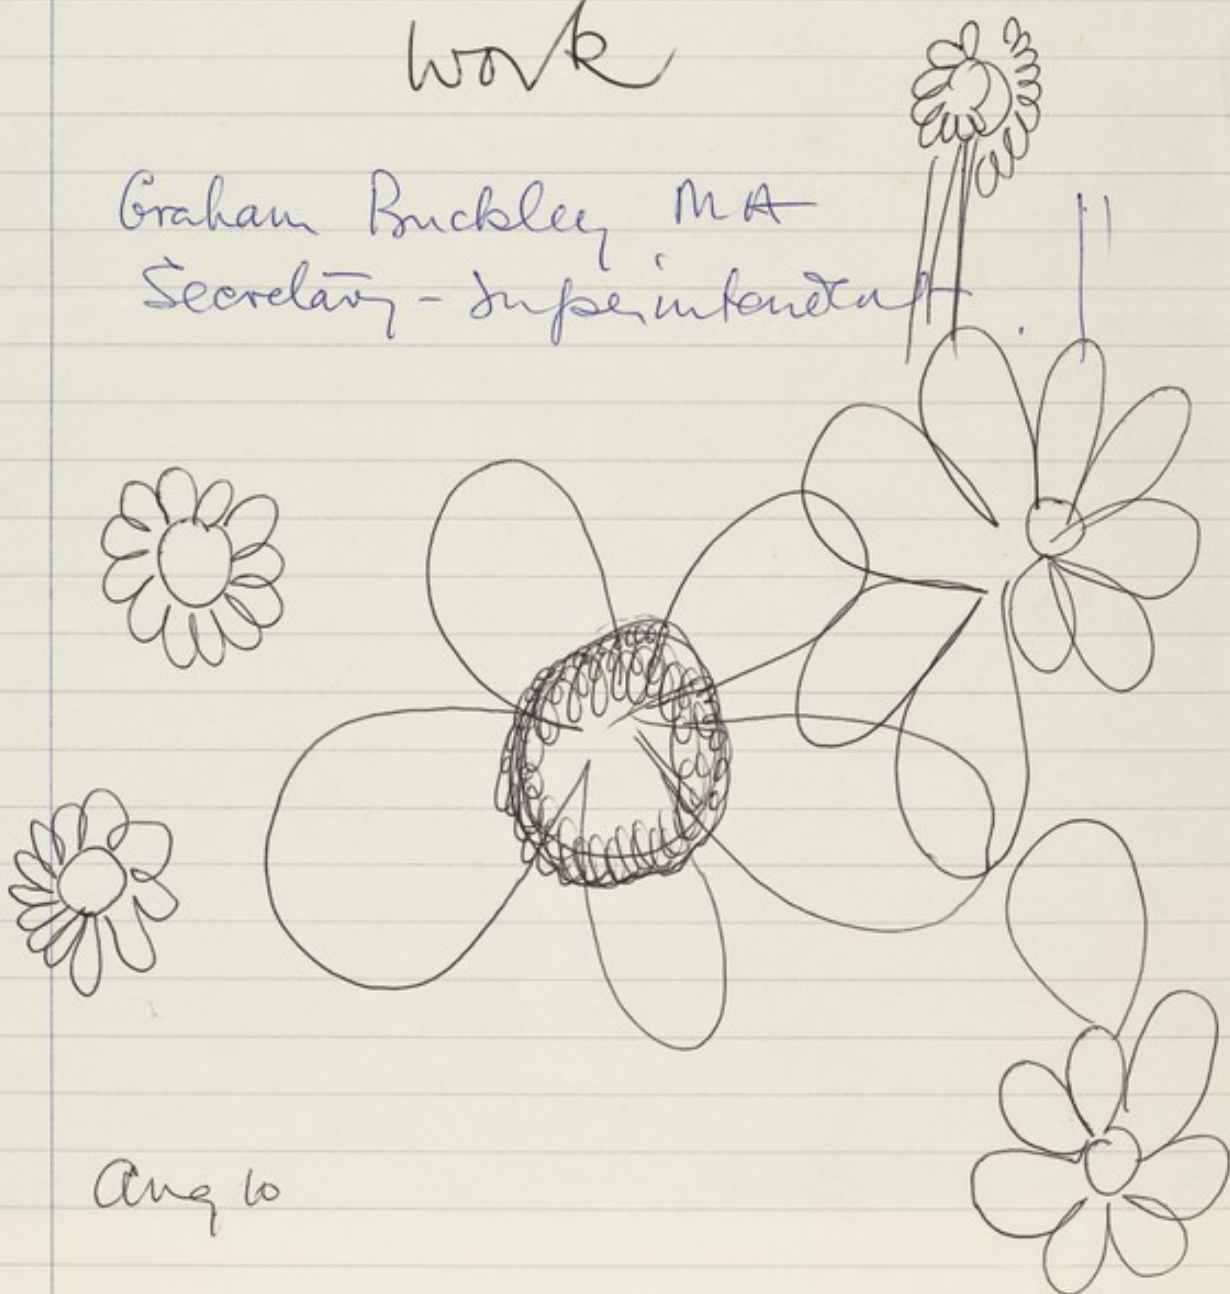 work
Graham Buckley MA
Secretary - Superintendent
Aug 10